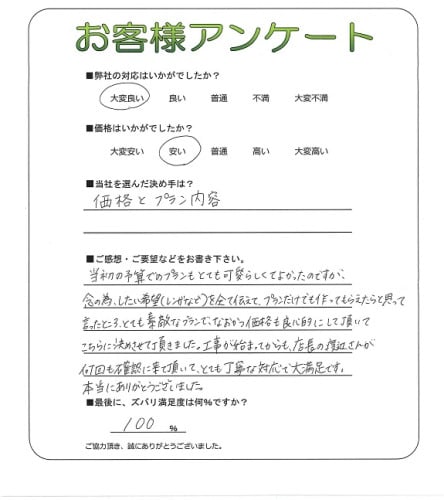 お客様アンケート
■弊社の対応はいかがでしたか？
大変良い 良い 普通 不満 大変不満
■価格はいかがでしたか？
大変安い 安い 普通 高い 大変高い
■当社を選んだ決め手は？
価格とプラン内容
■ご感想・ご要望などをお書き下さい。
当初の予算でのプランもとても可愛らしくてよかったのですが、
念の為、したい希望(レンガなど)を全て伝えて、プランだけでも作ってもらえたらと思って
言ったところ、とても素敵なプランで、なおかつ価格も良心的にして頂いて
こちらに決めさせて頂きました。工事が始まってからも、店長の渡辺さんが
何回も確認に来て頂いて、とても丁寧な対応で大満足です。
本当にありがとうございました。
■最後に、ズバリ満足度は何%ですか？
100 %
ご協力頂き、誠にありがとうございました。